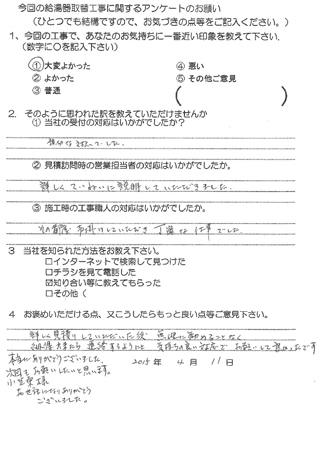 今回の給湯器取替工事に関するアンケートのお願い
(ひとつでも結構ですので、お気づきの点等をご記入ください。)
1、今回の工事で、あなたのお気持ちに一番近い印象を教えて下さい。
(数字に○を記入下さい)
① 大変よかった ④ 悪い
② よかった ⑤ その他ご意見
③ 普通 ( )
2. そのように思われた訳を教えていただけませんか
① 当社の受付の対応はいかがでしたか?
でした。
② 見積訪問時の営業担当者の対応はいかがでしたか。
詳しくていねいに説明していただきました。
③ 施工時の工事職人の対応はいかがでしたか。
その都度 声掛けしていただき 丁寧な仕事でした。
3 当社を知られた方法をお教え下さい。
□インターネットで検索して見つけた
□チラシを見て電話した
☑知り合い等に教えてもらった
□その他(
4 お褒めいただける点、又こうしたらもっと良い点等ご意見下さい。
詳しく見積りしていただいた後 無理に勧めることなく
気持ちの良い対応で お願いして良かったです
本当にありがとうございました。 2015年 4月 11日
次回もお願いしたいと思います。
様
お世話になりありがとう
ございました。